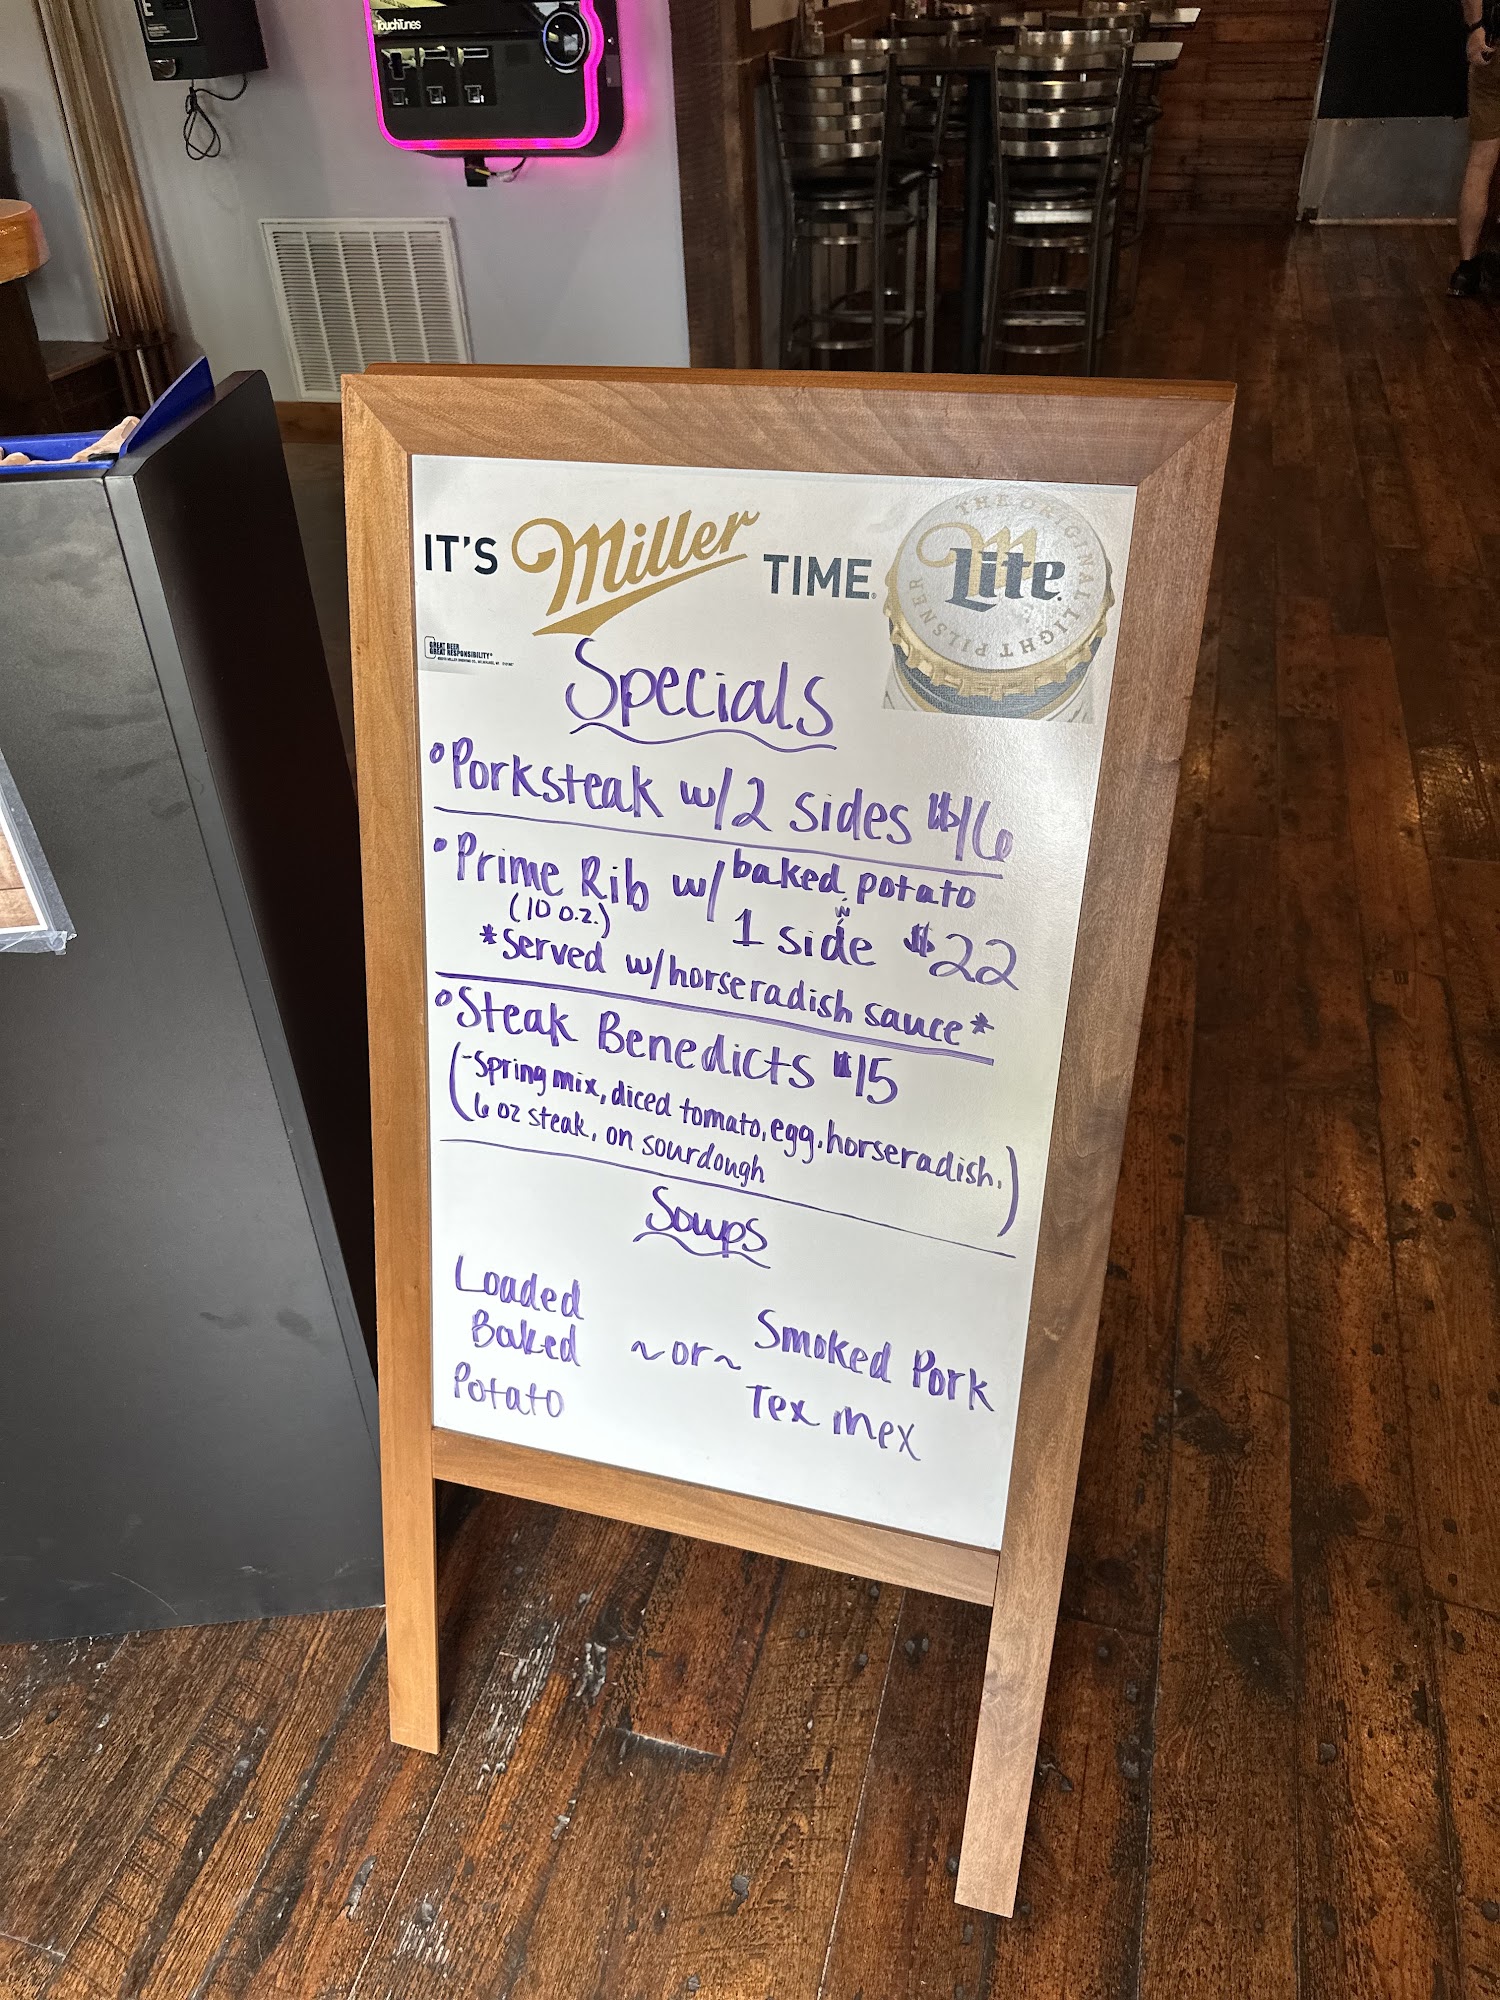 TouchTunes
IT'S Miller TIME.
THE ORIGINAL LIGHT PILSNER
Lite
GREAT BEER
GREAT RESPONSIBILITY®
Specials
Porksteak w/2 sides $16
Prime Rib w/ baked potato
(10 oz.) n' 1 side $22
*Served w/horseradish sauce*
Steak Benedicts $15
(-Spring mix, diced tomato, egg, horseradish,
6 oz steak, on sourdough)
Soups
Loaded
Baked
Potato
~or~
Smoked Pork
Tex mex